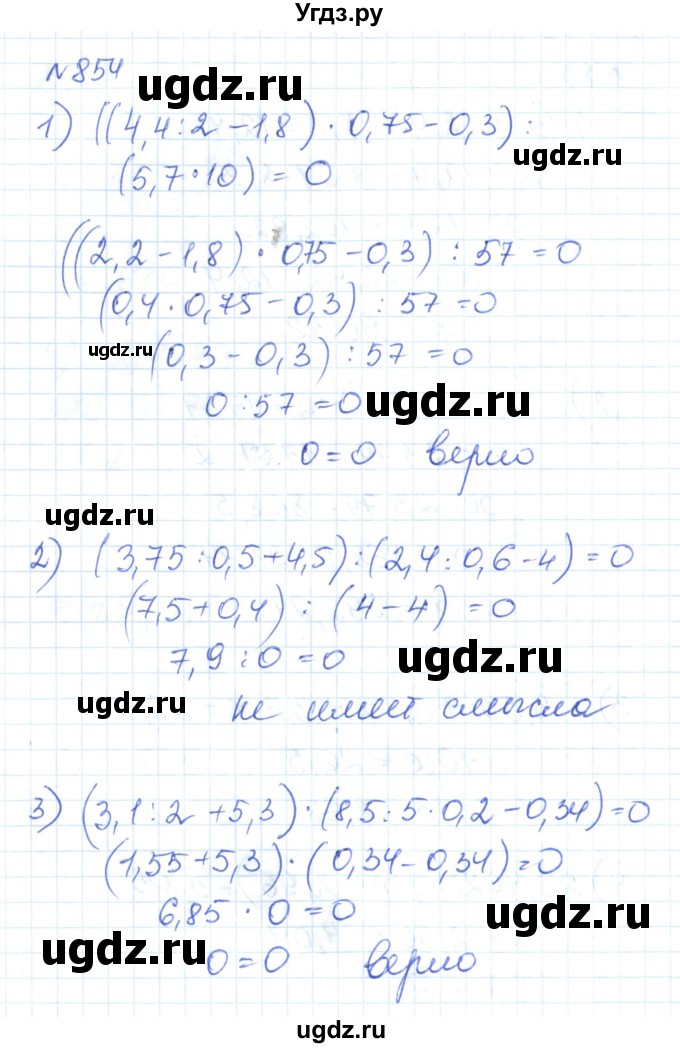 Угдз.ру
№854
ugdz.ru
1) ((4,4:2-1,8)·0,75-0,3):
ugdz.ru
(5,7·10) = 0
((2,2-1,8)·0,75-0,3):57=0
(0,4·0,75-0,3):57=0
ugdz.ru
(0,3-0,3):57=0
0:57=0
ugdz.ru
0=0 верно
ugdz.ru
2) (3,75:0,5+4,5):(2,4:0,6-4)=0
(7,5+0,4):(4-4)=0
7,9:0=0
ugdz.ru
ugdz.ru
не имеет смысла
3) (3,1:2+5,3)·(8,5:5·0,2-0,34)=0
(1,55+5,3)·(0,34-0,34)=0
6,85·0=0
ugdz.ru
ugdz.ru
0=0 верно
ugdz.ru